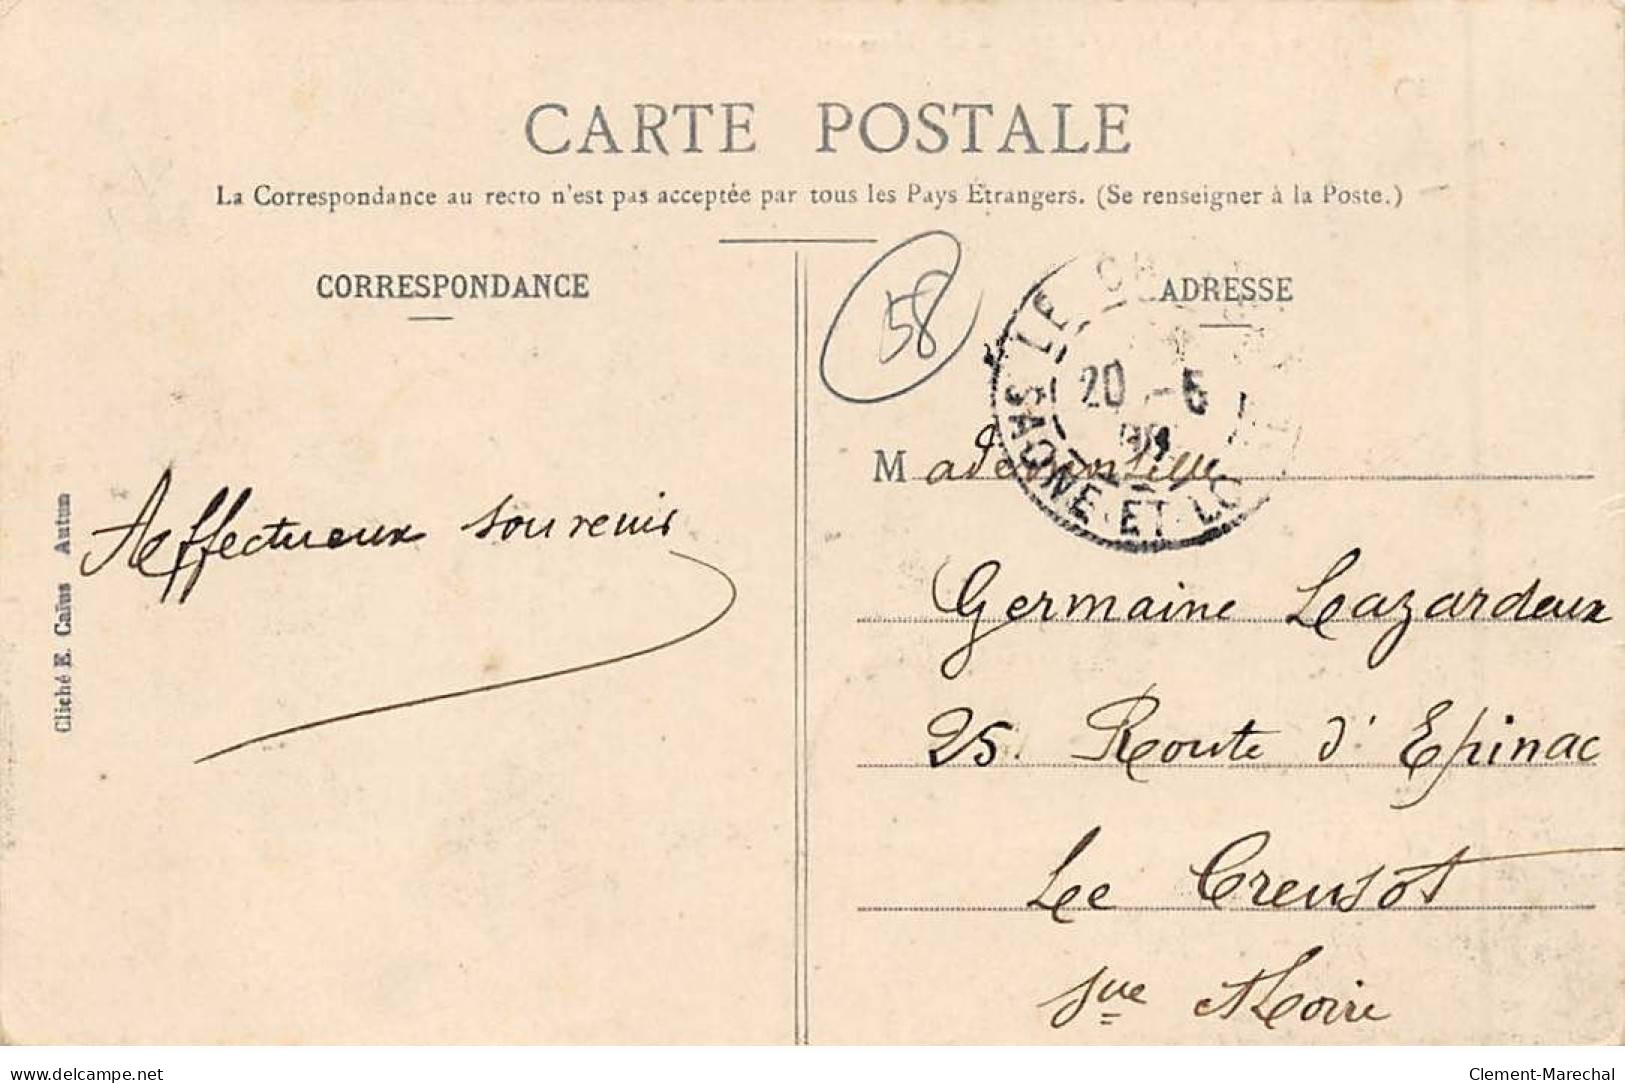 CARTE POSTALE
La Correspondance au recto n'est pas acceptée par tous les Pays Étrangers. (Se renseigner à la Poste.)
CORRESPONDANCE
Affectueux souvenir
Cliché E. Caïus Autun
58
ADRESSE
LE
20 -5
SAONE-ET-LO
Mademoiselle
Germaine Lazardeux
25 Route d'Epinac
Le Creusot
Sne et Loire
www.delcampe.net
Clement-Marechal